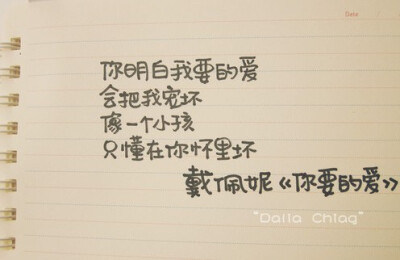 Date
你明白我要的爱
会把我宠坏
像一个小孩
只懂在你怀里坏
戴佩妮《你要的爱》
"Daila Chlag"